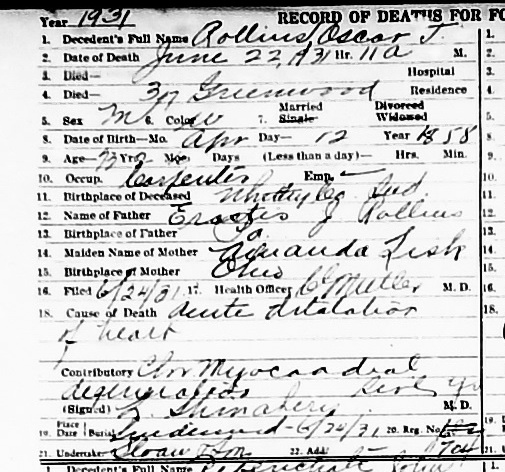 Year 1931 RECORD OF DEATHS FOR FO
1. Decedent's Full Name Rollins Oscar T.
2. Date of Death June 22, 1931 Hr. 11 a M.
3. Died— Hospital
4. Died— Greenwood Residence
5. Sex M 6. Color W 7. Married Single Divorced Widowed
8. Date of Birth—Mo. Apr Day— 12 Year 1858
9. Age— 73 Yrs. 2 Mos. Days (Less than a day)— Hrs. Min.
10. Occup. Carpenter Emp.
11. Birthplace of Deceased Whitley Co. Ind.
12. Name of Father J Rollins
13. Birthplace of Father
14. Maiden Name of Mother Amanda Lisk
15. Birthplace of Mother Ohio
16. Filed 6/24/31 17. Health Officer Miller M. D.
18. Cause of Death acute dilatation
of heart
Contributory Chr Myocardial
degeneration
(Signed) M. D.
19. Place Date Burial Lindenwood - 6/24/31 20. Reg. No.
21. Undertaker Sloan & Son 22. Add.
1. Decedent's Full Name